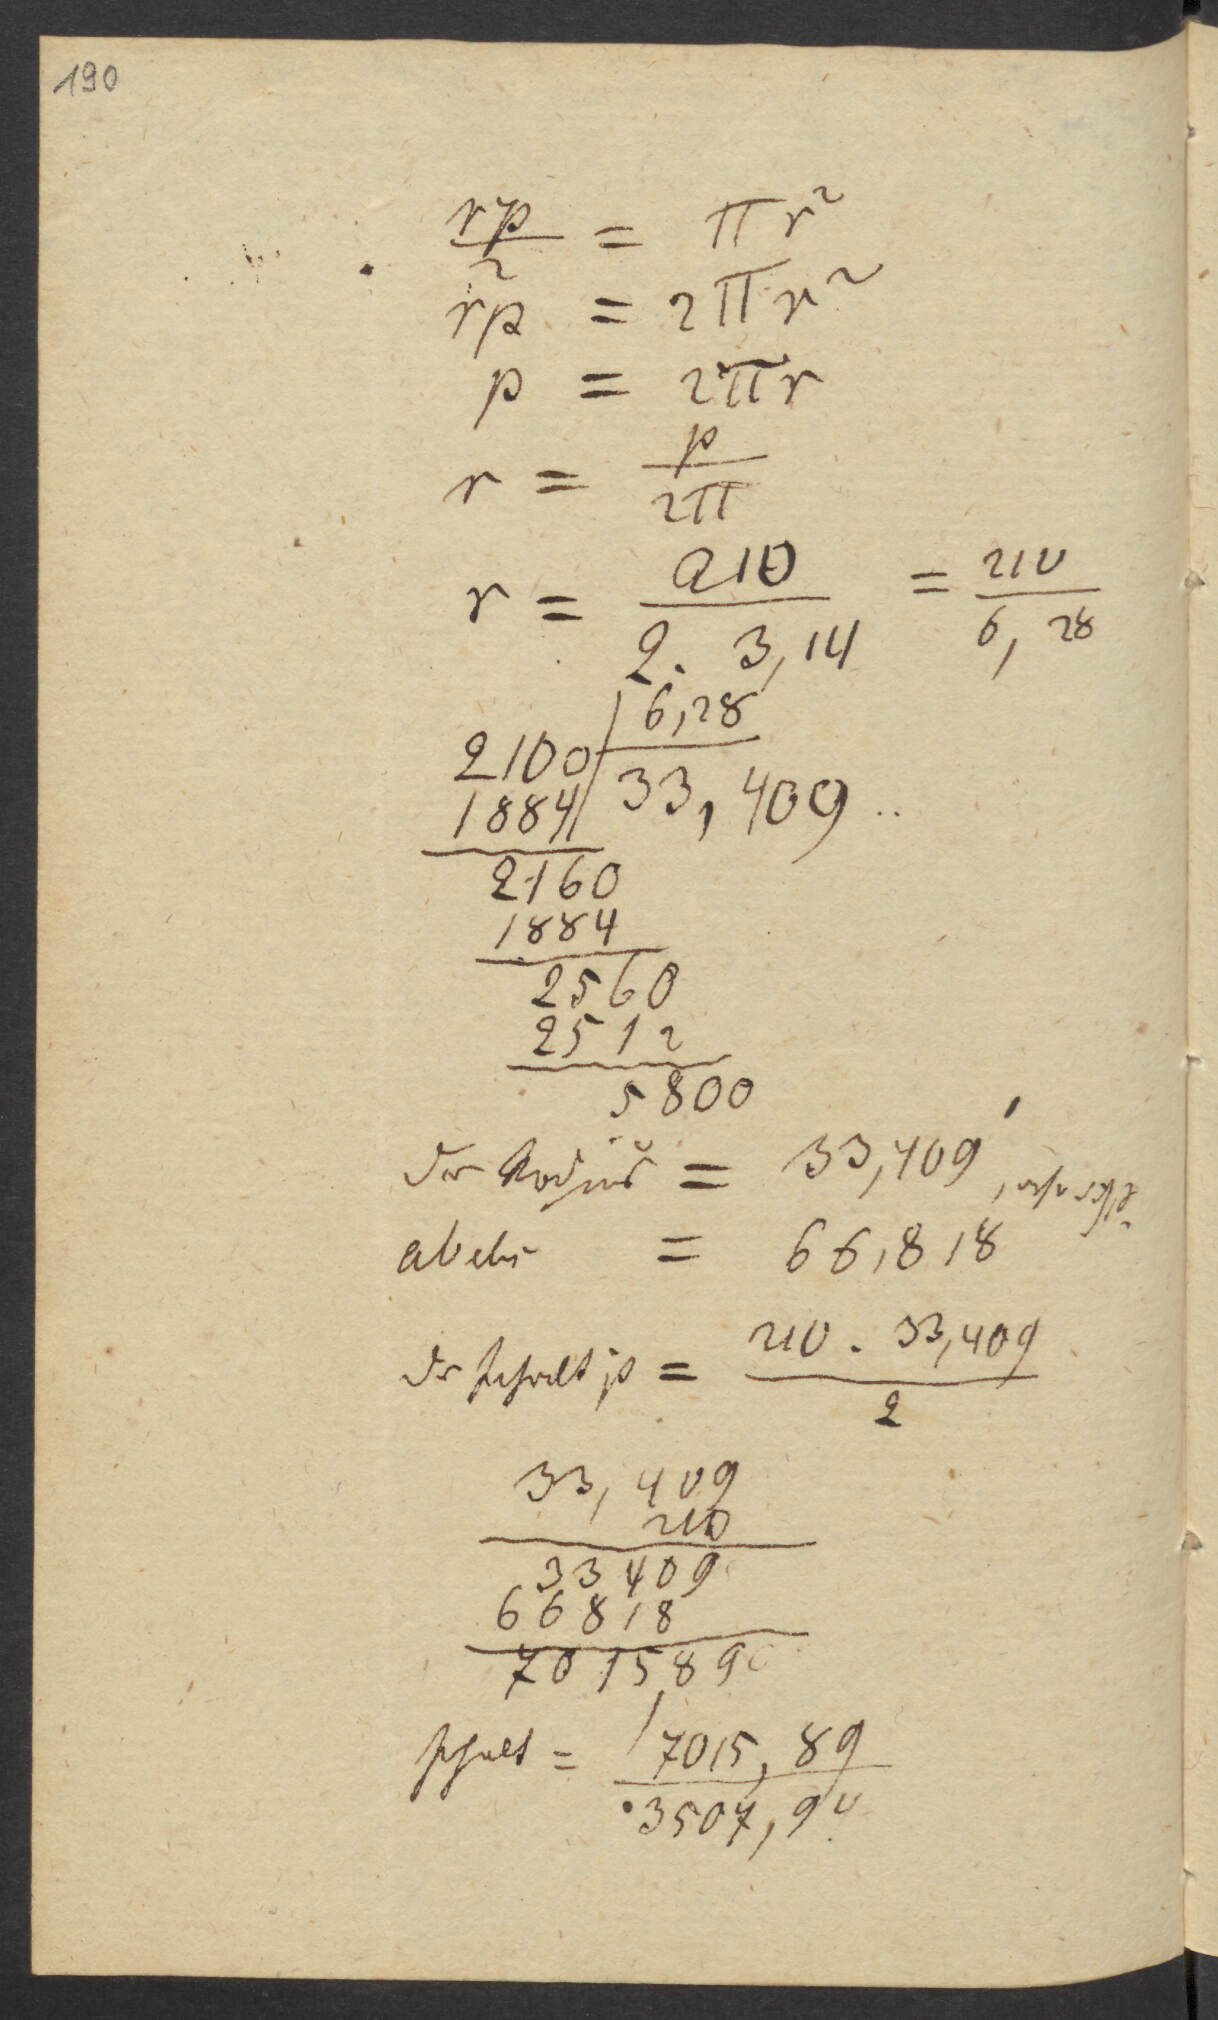 190
rp/2 = πr²
rp = 2πr²
p = 2πr
r = p/2π
r = 210/2. 3,14 = 210/6,28
6,28
2100
1884 33,409..
2160
1884
2560
2512
5800
der Radius = 33,409',
= 66,818
der Inhalt ist = 210. 33,409/2
33,409
210
33409
66818
7015,890
Inhalt = 7015,89
3507,94